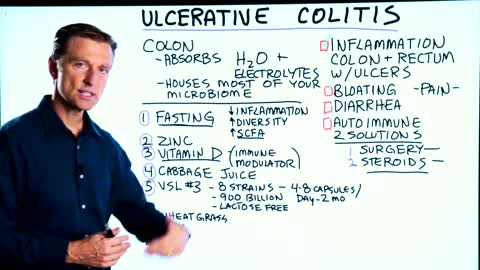 ULCERATIVE COLITIS
COLON
-ABSORBS H2O +
ELECTROLYTES
-HOUSES MOST OF YOUR
MICROBIOME
1 FASTING ↓INFLAMMATION
↑DIVERSITY
↑SCFA
2 ZINC
3 VITAMIN D (IMMUNE
MODULATOR)
4 CABBAGE JUICE
5 VSL #3 - 8 STRAINS - 4-8 CAPSULES/
- 900 BILLION DAY-2 mo
- LACTOSE FREE
WHEATGRASS
INFLAMMATION
COLON + RECTUM
W/ULCERS
BLOATING -PAIN-
DIARRHEA
AUTOIMMUNE
2 SOLUTIONS
1 SURGERY—
2 STEROIDS—